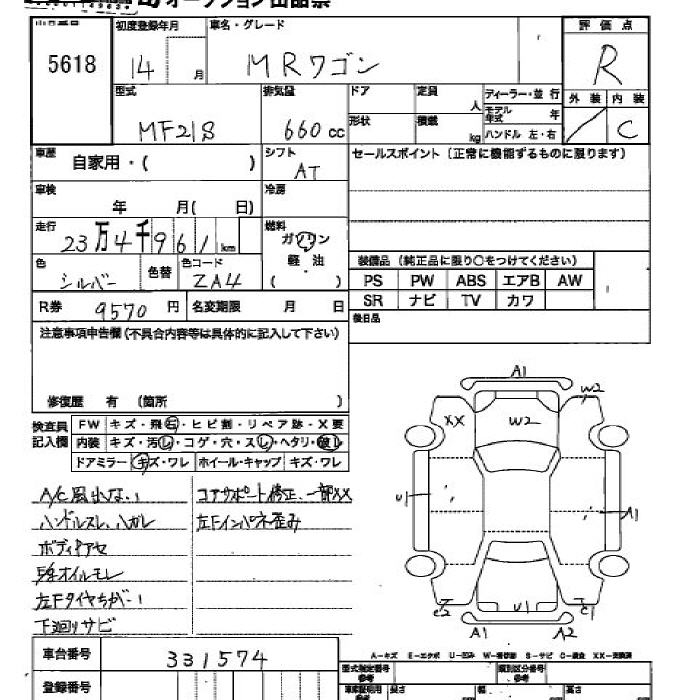 オークション出品票
出品番号 初度登録年月 車名・グレード 評価点
5618 14 月 MRワゴン R
型式 排気量 ドア 定員 人 ディーラー・並行 外装 内装
MF21S 660cc 形状 積載 kg モデル年式 年 ハンドル 左・右 C
車歴 自家用・( ) シフト AT セールスポイント(正常に機能するものに限ります)
車検 年 月( 日) 冷房
走行 23万4千961km 燃料 ガソリン
軽油
( )
色 シルバー 色替 色コード ZA4
装備品(純正品に限り○をつけてください)
PS PW ABS エアB AW
SR ナビ TV カワ
R券 9570円 名変期限 月 日
後日品
注意事項申告欄(不具合内容等は具体的に記入して下さい)
修復歴 有 (箇所 )
検査員記入欄
FW キズ・飛石・ヒビ割・リペア跡・X要
内装 キズ・汚レ・コゲ・穴・スレ・ヘタリ・破レ
ドアミラー キズ・ワレ ホイール・キャップ キズ・ワレ
A/C風出ない
ハンドルスレ、ハガレ
ボディアセ
左Fタイヤちがい
下廻りサビ
コアサポート修正、一部XX
左Fインパネ歪み
A1
W2
XX W2
U1 A1
U1
A1 A2
A-キズ E-エクボ U-凹み W-補修跡 S-サビ C-腐食 XX-交換済
車台番号 331574
登録番号
型式指定番号 参考 類別区分番号 参考
長さ 幅 高さ